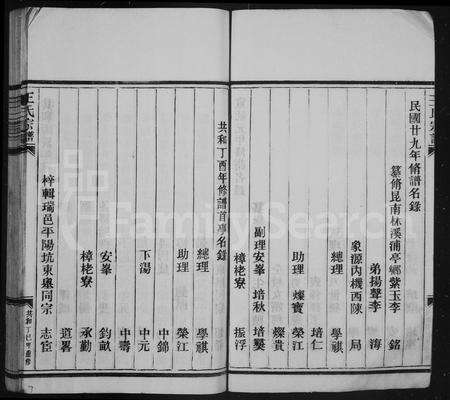 民國廿九年脩譜名錄
纂脩昆南林溪浦亭鄉紫玉李 銘
弟揚聲李 海
象源內機西陳 局
總理 學祺
培仁
助理 燦寶 榮江
燦貴
副理安峯 培秋 培奬
樟栳寮 振浮
共和丁酉年修譜首事名錄
總理 學祺
助理 榮江
中錦
下湯 中元
中壽
安峯 鈞畝
樟栳寮 承勤
道畧
梓輯瑞邑平陽坑東㠗同宗 志宦
王氏宗譜
FamilySearch